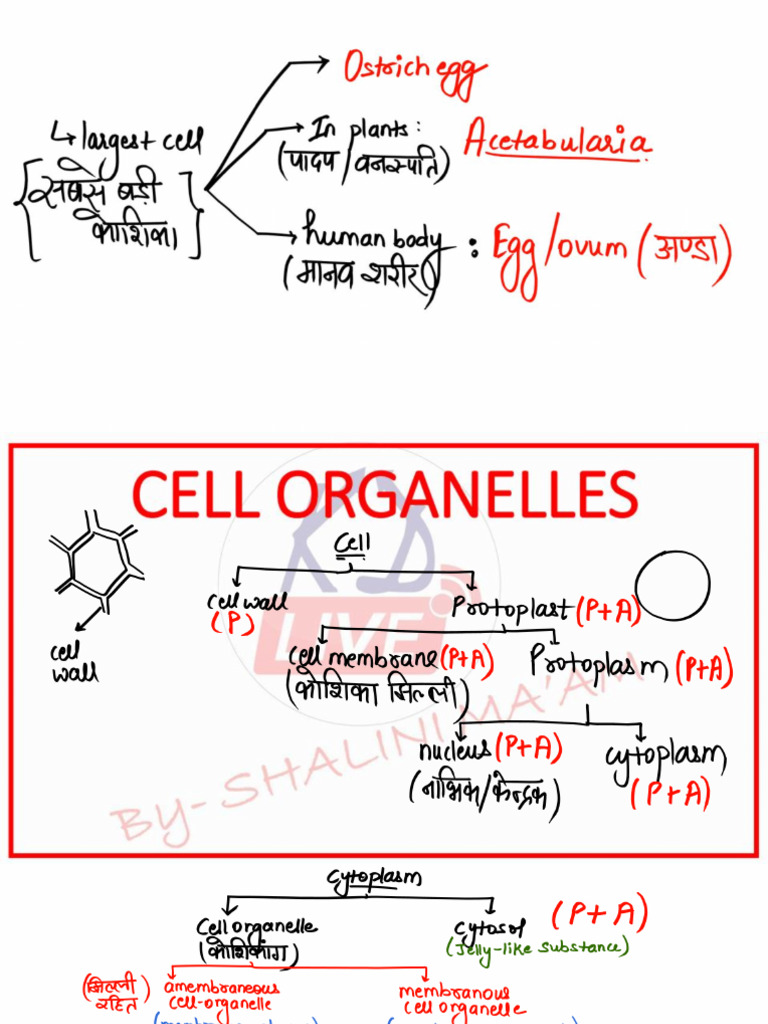 Ostrich egg
↳ largest cell
{सबसे बड़ी
कोशिका}
In plants: Acetabularia
(पादप/वनस्पति)
human body : Egg/ovum (अण्डा)
(मानव शरीर)
CELL ORGANELLES
Cell
cell wall
(P)
Protoplast (P+A)
cell
wall
cell membrane (P+A)
(कोशिका झिल्ली)
Protoplasm (P+A)
nucleus (P+A)
(नाभिक/केन्द्रक)
cytoplasm
(P+A)
KD
LIVE
BY-SHALINI MA'AM
Cytoplasm
Cell organelle
(कोशिकांग)
Cytosol (P+A)
(Jelly-like substance)
(झिल्ली
रहित)
amembraneous
cell-organelle
membranous
cell organelle